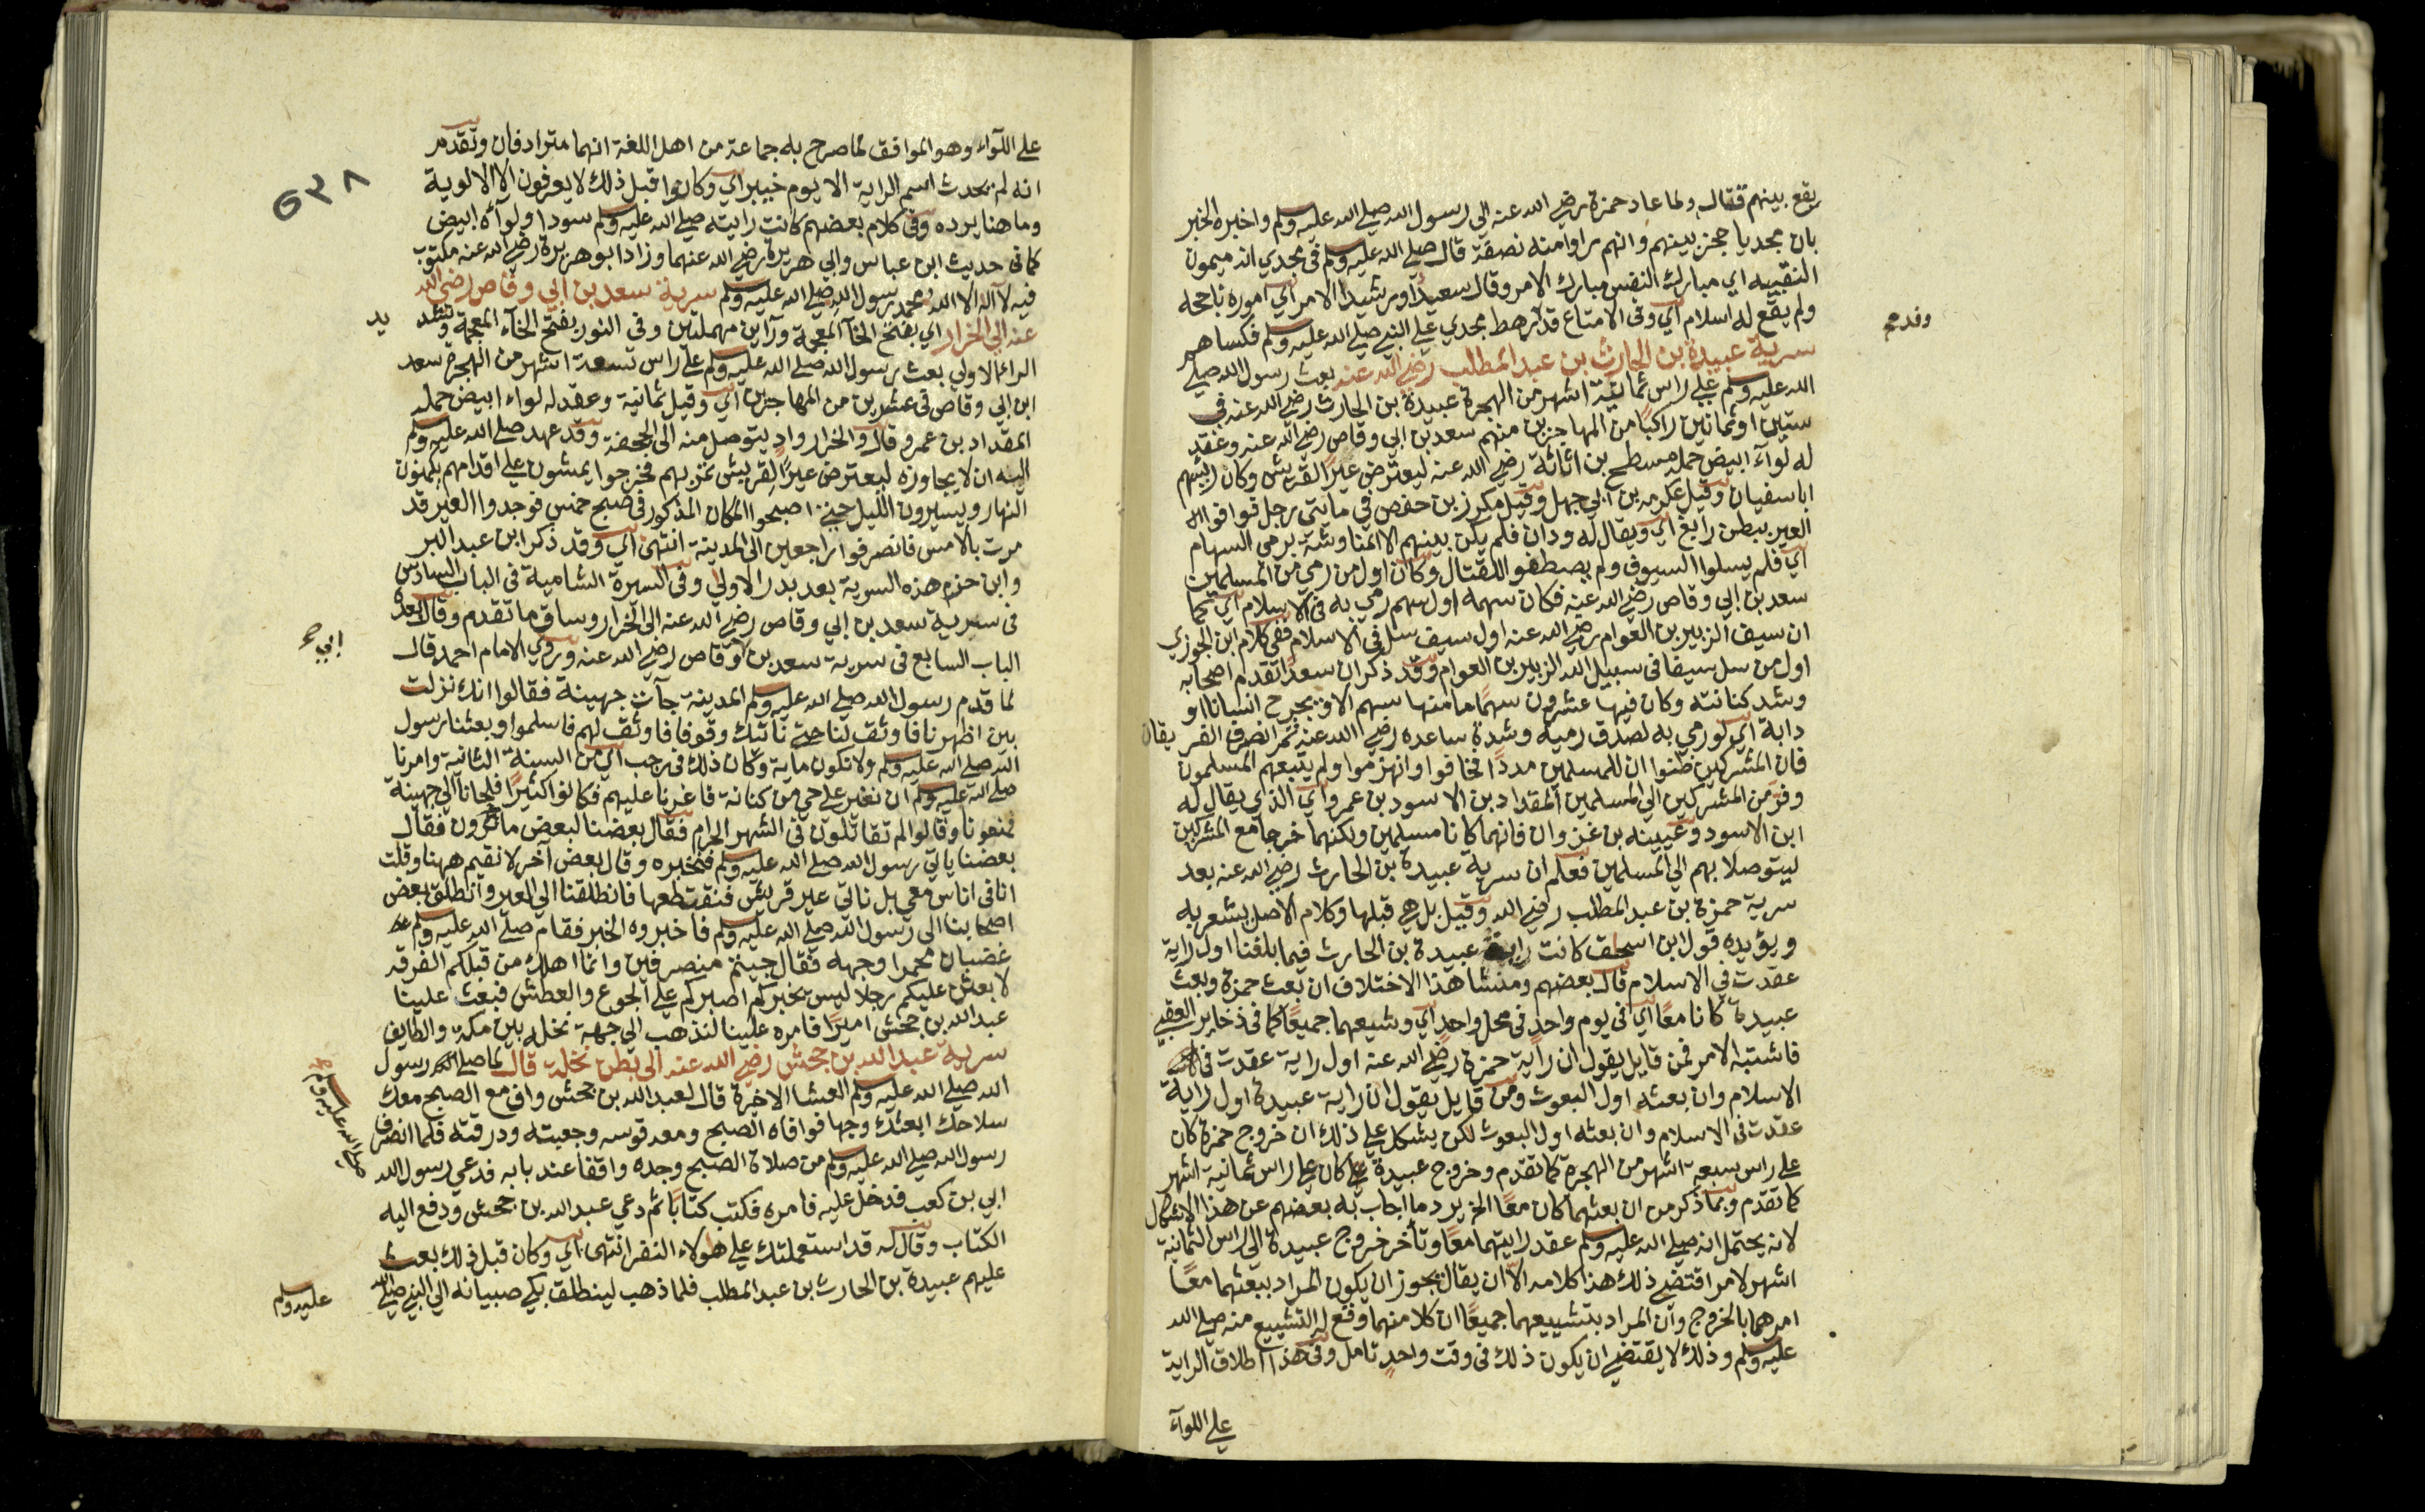 يقع بينهم قتال ولما عاد حمزة رضي الله عنه الي رسول الله صلي الله عليه وسلم واخبره الخبر
بان مجديا حجز بينهم وانهم راوا منه نصفة قال صلي الله عليه وسلم في مجدي انه ميمون
النقيبه اي مبارك النفس مبارك الامر وقال سعيدا او رشيدا الامر اي اموره ناجحه
ولم يقع له اسلام اي وفي الامتاع قدم رهط مجدي علي النبي صلي الله عليه وسلم فكساهم
وقدم
سرية عبيدة بن الحارث بن عبد المطلب رضي الله عنه بعث رسول الله صلي
الله عليه وسلم علي راس ثمانية اشهر من الهجرة عبيدة بن الحارث رضي الله عنه في
ستين او ثمانين راكبا من المهاجرين منهم سعد بن ابي وقاص رضي الله عنه وعقد
له لوآء ابيض حمله مسطح بن اثاثة رضي الله عنه ليعترض عيرا لقريش وكان رئيسهم
ابا سفيان وقيل عكرمه بن ابي جهل وقيل مكرز بن حفص في مايتي رجل فوافوا
العير ببطن رابغ اي ويقال له ودان فلم يكن بينهم الا المناوشة برمي السهام
اي فلم يسلوا السيوف ولم يصطفوا للقتال وكان اول من رمي من المسلمين
سعد بن ابي وقاص رضي الله عنه فكان سهمه اول سهم رمي به في الاسلام اي كما
ان سيف الزبير بن العوام رضي الله عنه اول سيف سل في الاسلام ففي كلام ابن الجوزي
اول من سل سيفا في سبيل الله الزبير بن العوام وقد ذكر ان سعدا تقدم اصحابه
وشد كنانته وكان فيها عشرون سهما ما منها سهم الا ويجرح انسانا او
دابة اي لو رمي به لصدق رميه وشدة ساعده رضي الله عنه ثم انصرف الفريقان
فان المشركين ظنوا ان للمسلمين مددا فخافوا وانهزموا ولم يتبعهم المسلمون
وفر من المشركين الي المسلمين المقداد بن الاسود بن عمرو اي الذي يقال له
ابن الاسود وعيينه بن غزوان فانهما كانا مسلمين ولكنهما خرجا مع المشركين
ليتوصلا بهم الي المسلمين فعلم ان سرية عبيدة بن الحارث رضي الله عنه بعد
سرية حمزة بن عبد المطلب رضي الله وقيل بل هي قبلها وكلام الاصل يشعر به
ويؤيده قول ابن اسحق كانت راية عبيدة بن الحارث فيما بلغنا اول راية
عقدت في الاسلام قال بعضهم ومنشا هذا الاختلاف ان بعث حمزة وبعث
عبيدة كانا معا اي في يوم واحد في محل واحد اي وشيعهما جميعا كما في ذخاير العقبي
فاشتبه الامر فمن قايل يقول ان راية حمزة رضي الله عنه اول راية عقدت في
الاسلام وان بعثه اول البعوث ومن قايل يقول ان راية عبيدة اول راية
عقدت في الاسلام وان بعثه اول البعوث لكن يشكل علي ذلك ان خروج حمزة كان
علي راس سبعة اشهر من الهجرة كما تقدم وخروج عبيدة كان علي راس ثمانية اشهر
كما تقدم وبما ذكر من ان بعثهما كان معا الخ يرد ما اجاب به بعضهم عن هذا الاشكال
لانه يحتمل انه صلي الله عليه وسلم عقد رايتهما معا وتأخر خروج عبيدة الي راس الثمانية
اشهر لامر اقتضي ذلك هذا كلامه الا ان يقال يجوز ان يكون المراد ببعثهما معا
امرهما بالخروج وان المراد بتشييعهما جميعا ان كلا منهما وقع له التشييع منه صلي الله
عليه وسلم وذلك لا يقتضي ان يكون ذلك في وقت واحد تامل وفي هذا اطلاق الراية
علي اللوآء
٥٣٨
علي اللوآء وهو الموافق لما صرح به جماعة من اهل اللغة انهما مترادفان وتقدم
انه لم يحدث اسم الراية الا يوم خيبر اي وكانوا قبل ذلك لا يعرفون الا الالوية
وما هنا يرده وفي كلام بعضهم كانت رايته صلي الله عليه وسلم سودا ولوآؤه ابيض
كما في حديث ابن عباس وابي هريرة رضي الله عنهما وزاد ابو هريرة رضي الله عنه مكتوب
فيه لا اله الا الله محمد رسول الله صلي الله عليه وسلم سرية سعد بن ابي وقاص رضي الله
عنه الي الخرار اي بفتح الخآ المعجمة ورآاين مهملتين وفي النور بفتح الخآء المعجمة وتشد
يد
الراء الاولي بعث رسول الله صلي الله عليه وسلم علي راس تسعة اشهر من الهجرة سعد
ابن ابي وقاص في عشرين من المهاجرين اي وقيل ثمانية وعقد له لواء ابيض حمله
المقداد بن عمرو قال والخرار واد يتوصل منه الي الجحفة وقد عهد صلي الله عليه وسلم
اليه ان لا يجاوزه ليعترض عيرا لقريش تمر بهم فخرجوا يمشون علي اقدامهم يكمنون
النهار ويسيرون الليل حتي صبحوا المكان المذكور في صبح خمس فوجدوا العير قد
مرت بالامس فانصرفوا راجعين الي المدينة انتهي اي وقد ذكر ابن عبد البر
وابن حزم هذه السرية بعد بدر الاولي وفي السيرة الشامية في الباب السادس
في سرية سعد بن ابي وقاص رضي الله عنه الي الخرار وساق ما تقدم وقال بعده
الباب السابع في سرية سعد بن وقاص رضي الله عنه وروي الامام احمد قال
ابي صح
لما قدم رسول الله صلي الله عليه وسلم المدينة جآت جهينة فقالوا انك نزلت
بين اظهرنا فاوثق لنا حتي ناتيك وقوفا فاوثق لهم فاسلموا وبعثنا رسول
الله صلي الله عليه وسلم ولا نكون ماية وكان ذلك في رجب اي من السنة الثانية وامرنا
صلي الله عليه وسلم ان نغير علي حي من كنانة فاغرنا عليهم فكانوا كثيرا فلجانا الي جهينة
فمنعونا وقالوا لم تقاتلون في الشهر الحرام فقال بعضنا لبعض ما ترون فقال
بعضنا ياتي رسول الله صلي الله عليه وسلم فنخبره وقال بعض آخر لا نقيم ههنا وقلت
انا في اناس معي بل ناتي عير قريش فنقتطعها فانطلقنا الي العير وانطلق بعض
اصحابنا الي رسول الله صلي الله عليه وسلم فاخبروه الخبر فقام صلي الله عليه وسلم
غضبان محمرا وجهه فقال جيتم منصرفين وانما اهلك من قبلكم الفرقه
لا بعثن عليكم رجلا ليس بخيركم اصبركم علي الجوع والعطش فبعث علينا
عبد الله بن جحش اميرا فامره علينا لنذهب الي جهة نخله بين مكة والطايف
سرية عبد الله بن جحش رضي الله عنه الي بطن نخلة قال لما صلي رسول
الله صلي الله عليه وسلم العشا الاخرة قال لعبد الله بن جحش واف مع الصبح معك
صلي الله عليه وسلم
سلاحك ابعثك وجها فوافاه الصبح ومعه قوسه وجعبته ودرقته فلما انصرف
رسول الله صلي الله عليه وسلم من صلاة الصبح وجده واقفا عند بابه فدعي رسول الله
ابي بن كعب فدخل عليه فامره فكتب كتابا ثم دعي عبد الله بن جحش ودفع اليه
الكتاب وقال له قد استعملتك علي هولاء النفر انتهي اي وكان قبل ذلك بعث
عليهم عبيدة بن الحارث بن عبد المطلب فلما ذهب لينطلق بكي صبيانه الي النبي صلي الله
عليه وسلم